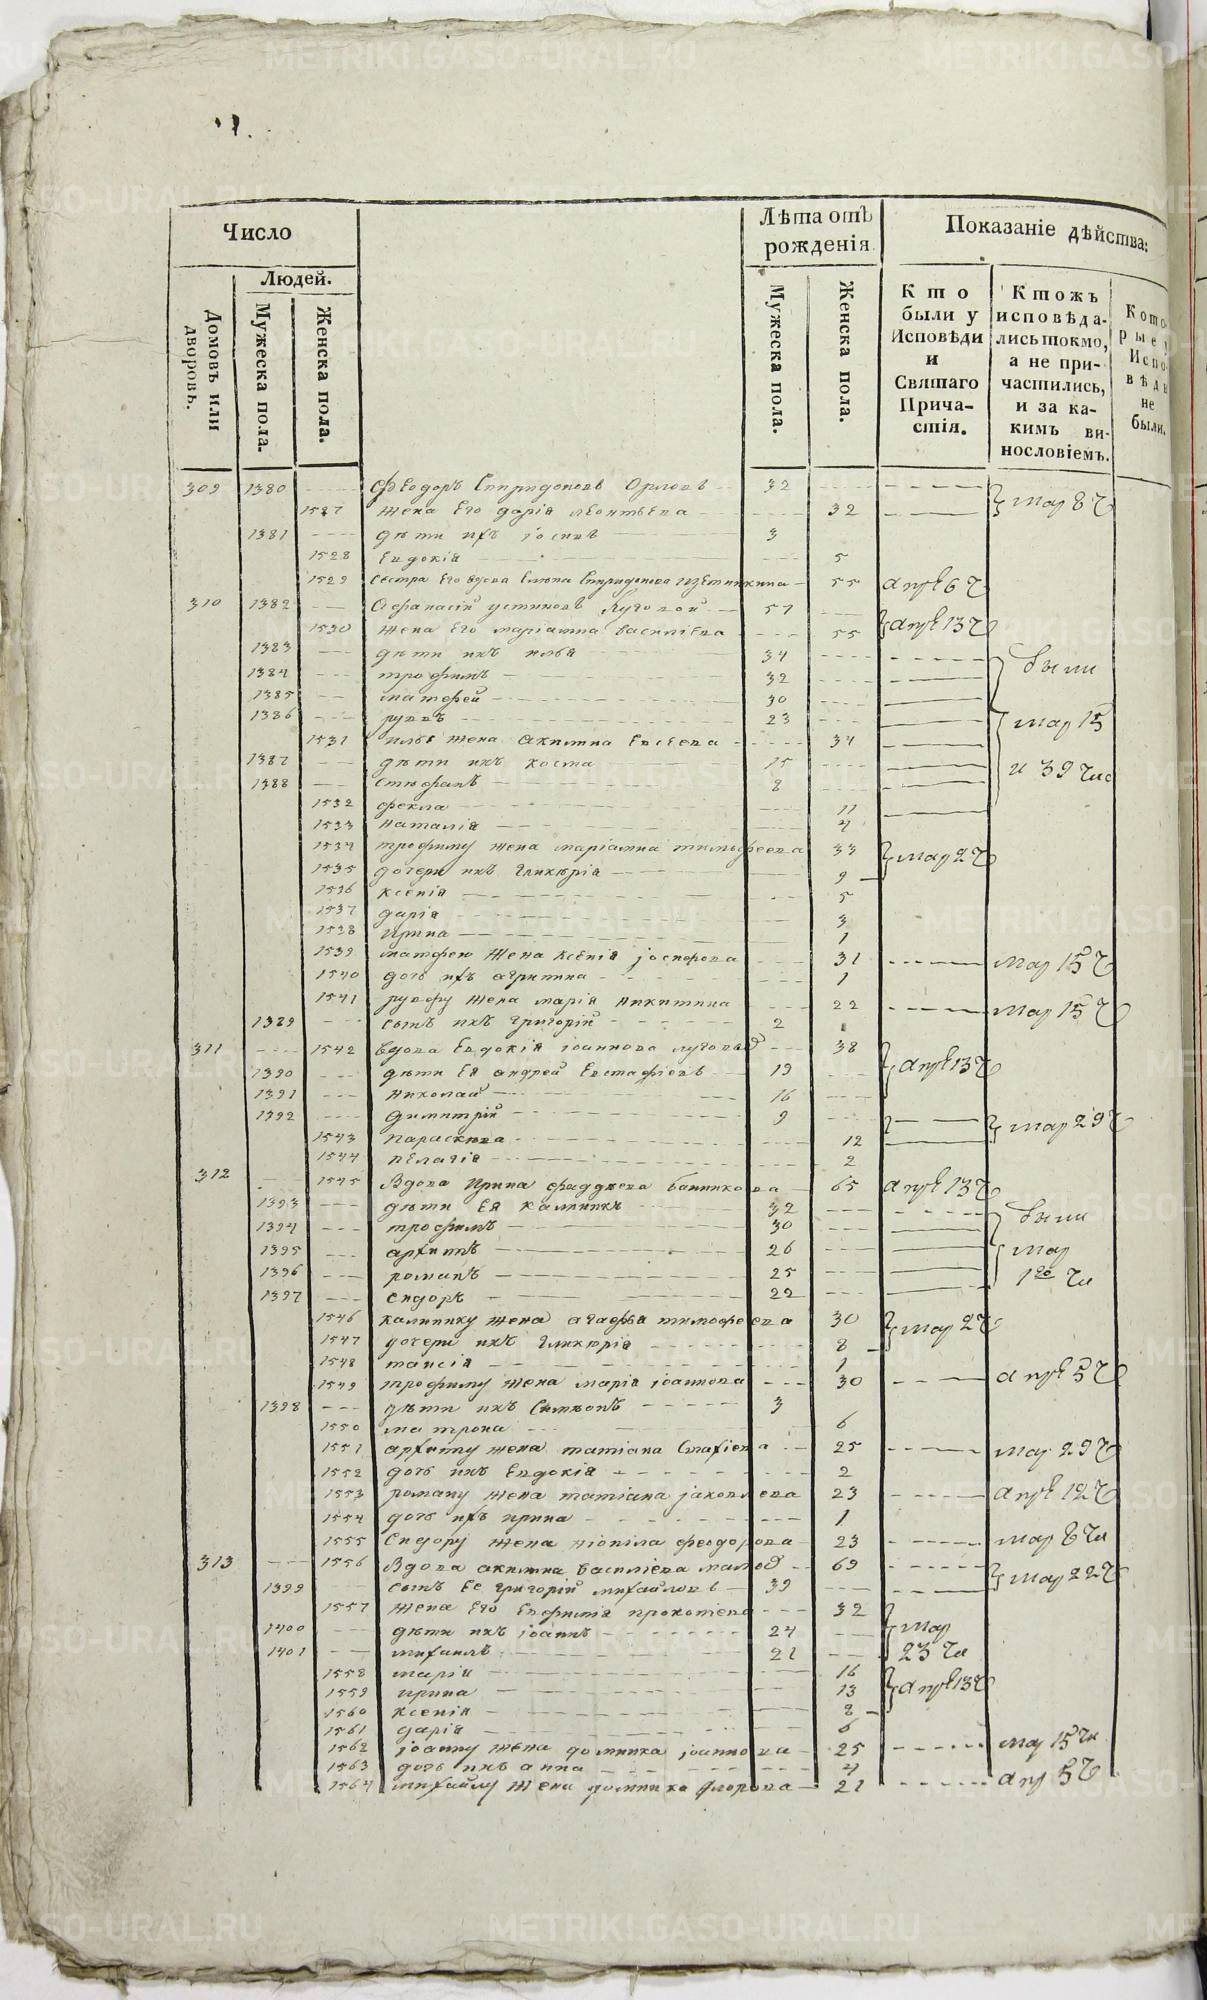 Число
Людей.
Домовъ или дворовъ.
Мужеска пола.
Женска пола.
Лѣта отъ рожденія
Мужеска пола.
Женска пола.
Показаніе дѣйства:
Кто были у Исповѣди и Святаго Причастія.
Ктожъ исповѣдались токмо, а не причастились, и за какимъ винословіемъ.
Которые у Исповѣди не были.
309 1380 Феодоръ Спиридоновъ Орловъ 32
1527 жена Его дарія леонтьева 32 мар 8 ч
1381 дѣти ихъ іосифъ 3
1528 Евдокія 5
1529 сестра Его вдова Елена Спиридонова 55 апрѣ 6 ч
310 1382 Афанасій устиновъ Луговой 57
1530 жена Его маріамна василіева 55 апрѣ 13 ч
1383 дѣти ихъ илья 34 были
1384 трофимъ 32
1385 матфей 30
1386 руфъ 23 мар 15
1531 ильѣ жена акилина Евсева 34
1387 дѣти ихъ коста 15 и 39 чис
1388 стефанъ 8
1532 фекла 11
1533 наталія 4
1534 трофиму жена маріамна тимофеева 33 мар 2 ч
1535 дочери ихъ Гликерія 9
1536 ксенія 5
1537 дарія 3
1538 ирина 1
1539 матфею жена ксенія іосифова 31 мар 15 ч
1540 дочь ихъ агрипина 1
1541 руфу жена марія никитина 22 мар 15 ч
1389 сынъ ихъ григорій 2
311 1542 вдова Евдокія іоаннова луговыхъ 38
1390 дѣти Ея андрей Евстафіевъ 19 апрѣ 13 ч
1391 николай 16
1392 димитрій 9
1543 параскева 12 мар 29 ч
1544 пелагія 2
312 1545 Вдова Ирина фаддѣева банникова 65 апрѣ 13 ч
1393 дѣти Ея калинникъ 32 были
1394 трофимъ 30
1395 архипъ 26 мар
1396 романъ 25
1397 сидоръ 22
1546 калиннику жена агафья тимофеева 30
1547 дочери ихъ Гликерія 8 мар 2 ч
1548 таисія 1
1549 трофиму жена марія іоаннова 30 апрѣ 5 ч
1398 дѣти ихъ Симеонъ 3
1550 матрона 6
1551 архипу жена татіана Евстафіева 25 мар 29 ч
1552 дочь ихъ Евдокія 2
1553 роману жена татіана іаковлева 23 апрѣ 12 ч
1554 дочь ихъ ирина 1
1555 Сидору жена неонила феодорова 23 мар 8 чи
313 1556 Вдова акилина василіева 69
1399 сынъ Ее григорій михайловъ 39 мар 22 ч
1557 жена Его Евфимія прокопіева 32
1400 дѣти ихъ іоаннъ 24 мар
1401 михаилъ 21 23 чи
1558 марія 16
1559 ирина 13 апрѣ 13 ч
1560 ксенія 8
1561 дарія 6
1562 іоанну жена домника іоаннова 25 мар 15 чи
1563 дочь ихъ анна 4
1564 михайлу жена домника флорова 21 апр 5 ч